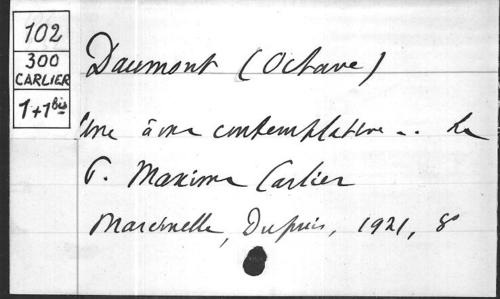 102
300
CARLIER
1+1bis
Daumont (Octave)
Une âme contemplative .. Le
P. Maxime Carlier
Marcinelle, Dupuis, 1921, 8°